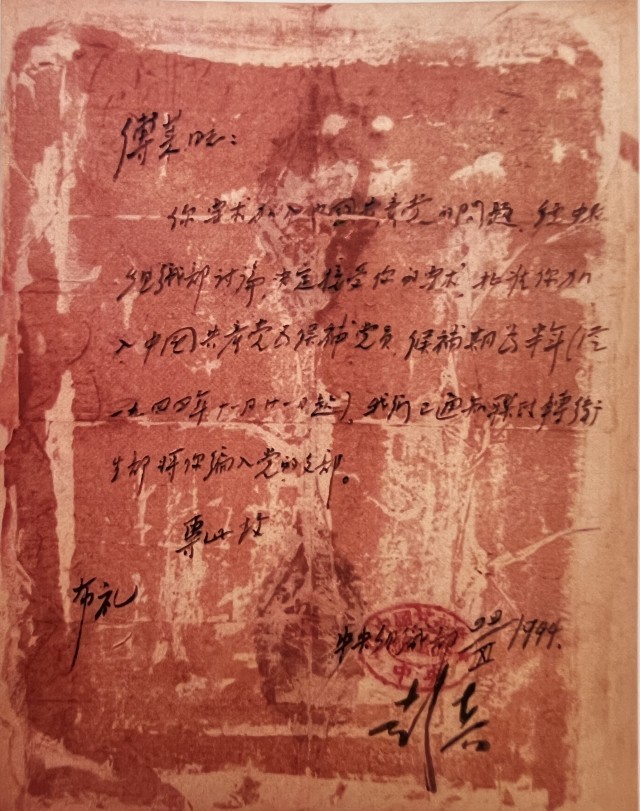 傅莱同志：
你要求加入中国共产党的問題，经中央
组织部讨論，决定接受你的要求，批准你加
入中国共产党为候補党员，候補期为半年（從
一九四四年十一月廿一日起），我们已通知聯政轉衛
生部将你编入党的支部。
專此 致
布礼
中央组织部 22/XI 1944.
彭真